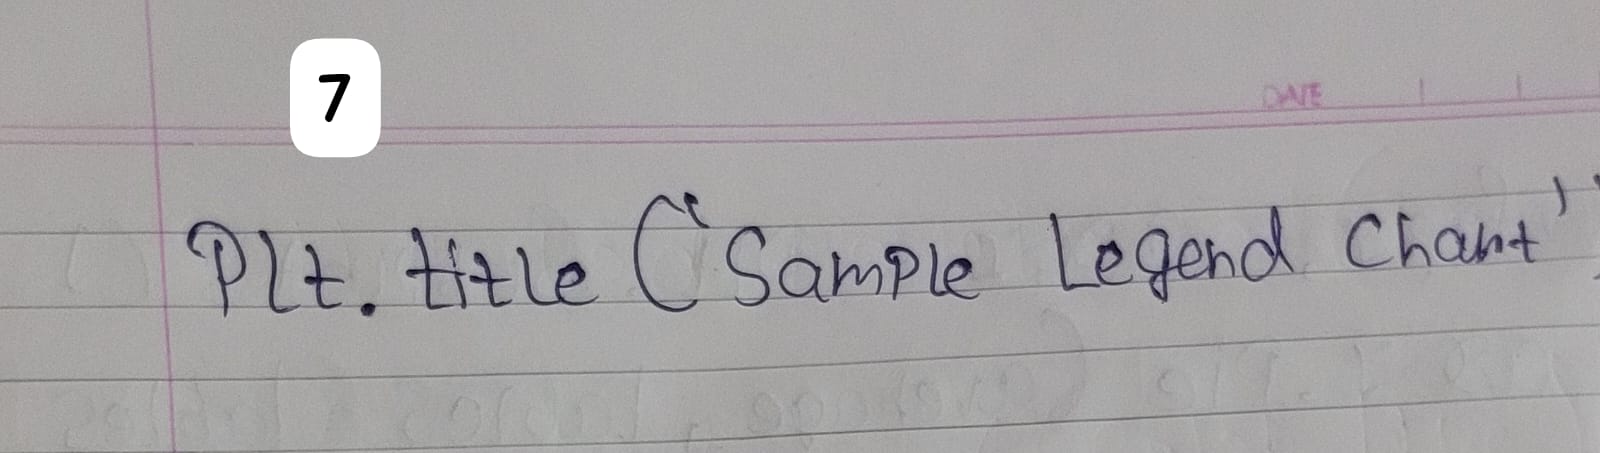 7
DATE
Plt. title ("Sample Legend Chart"